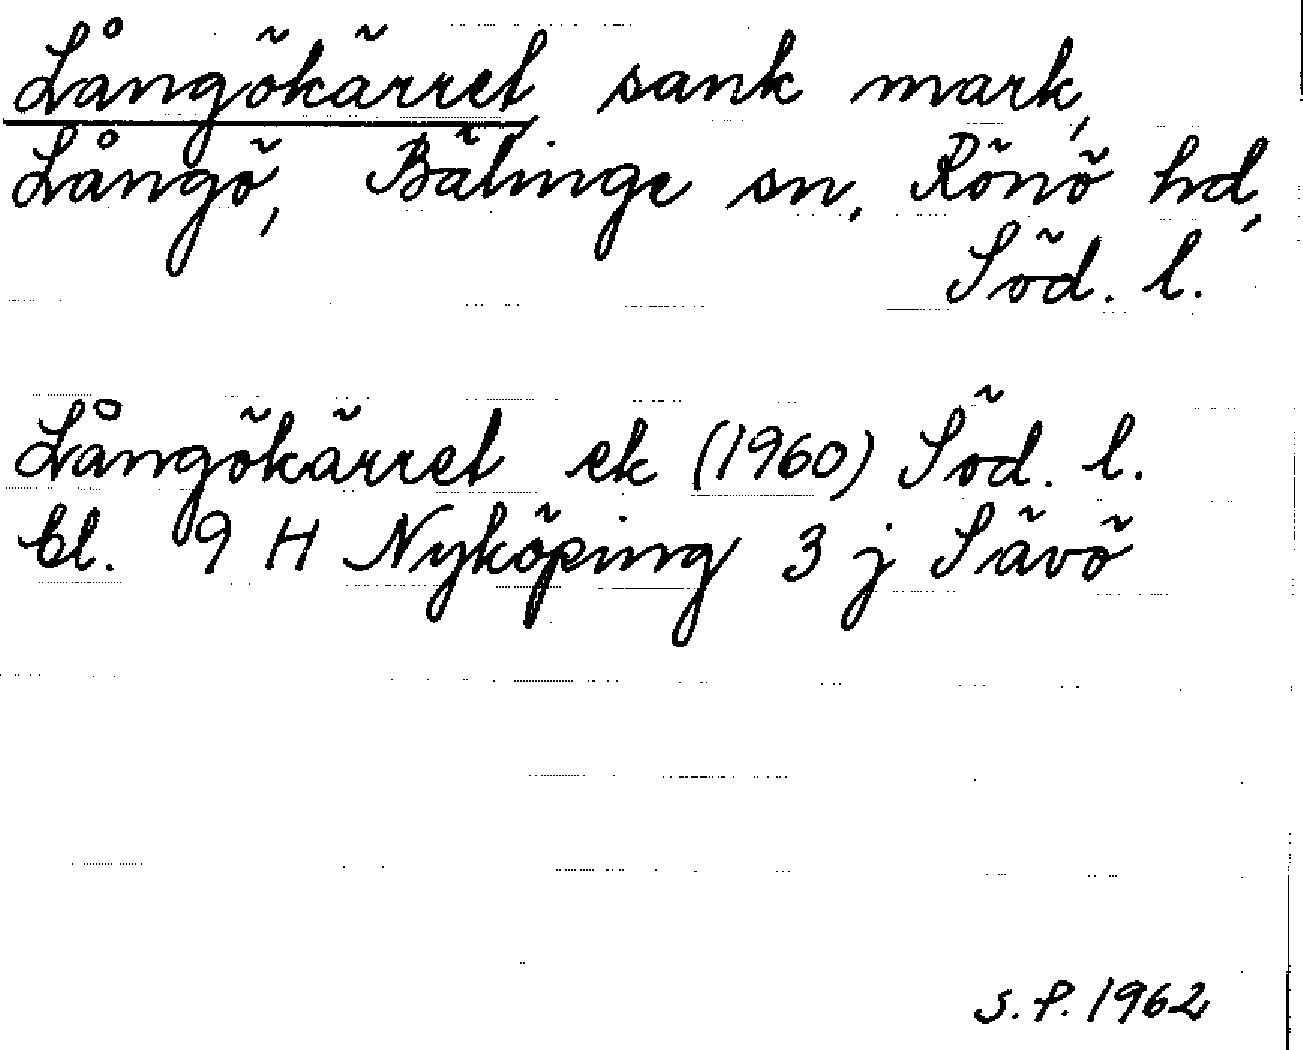 Långökärret sank mark,
Långö, Bälinge sn, Rönö hd,
Söd. l.
Långökärret ek (1960) Söd. l.
bl. 9 H Nyköping 3 j Sävö
S.P. 1962